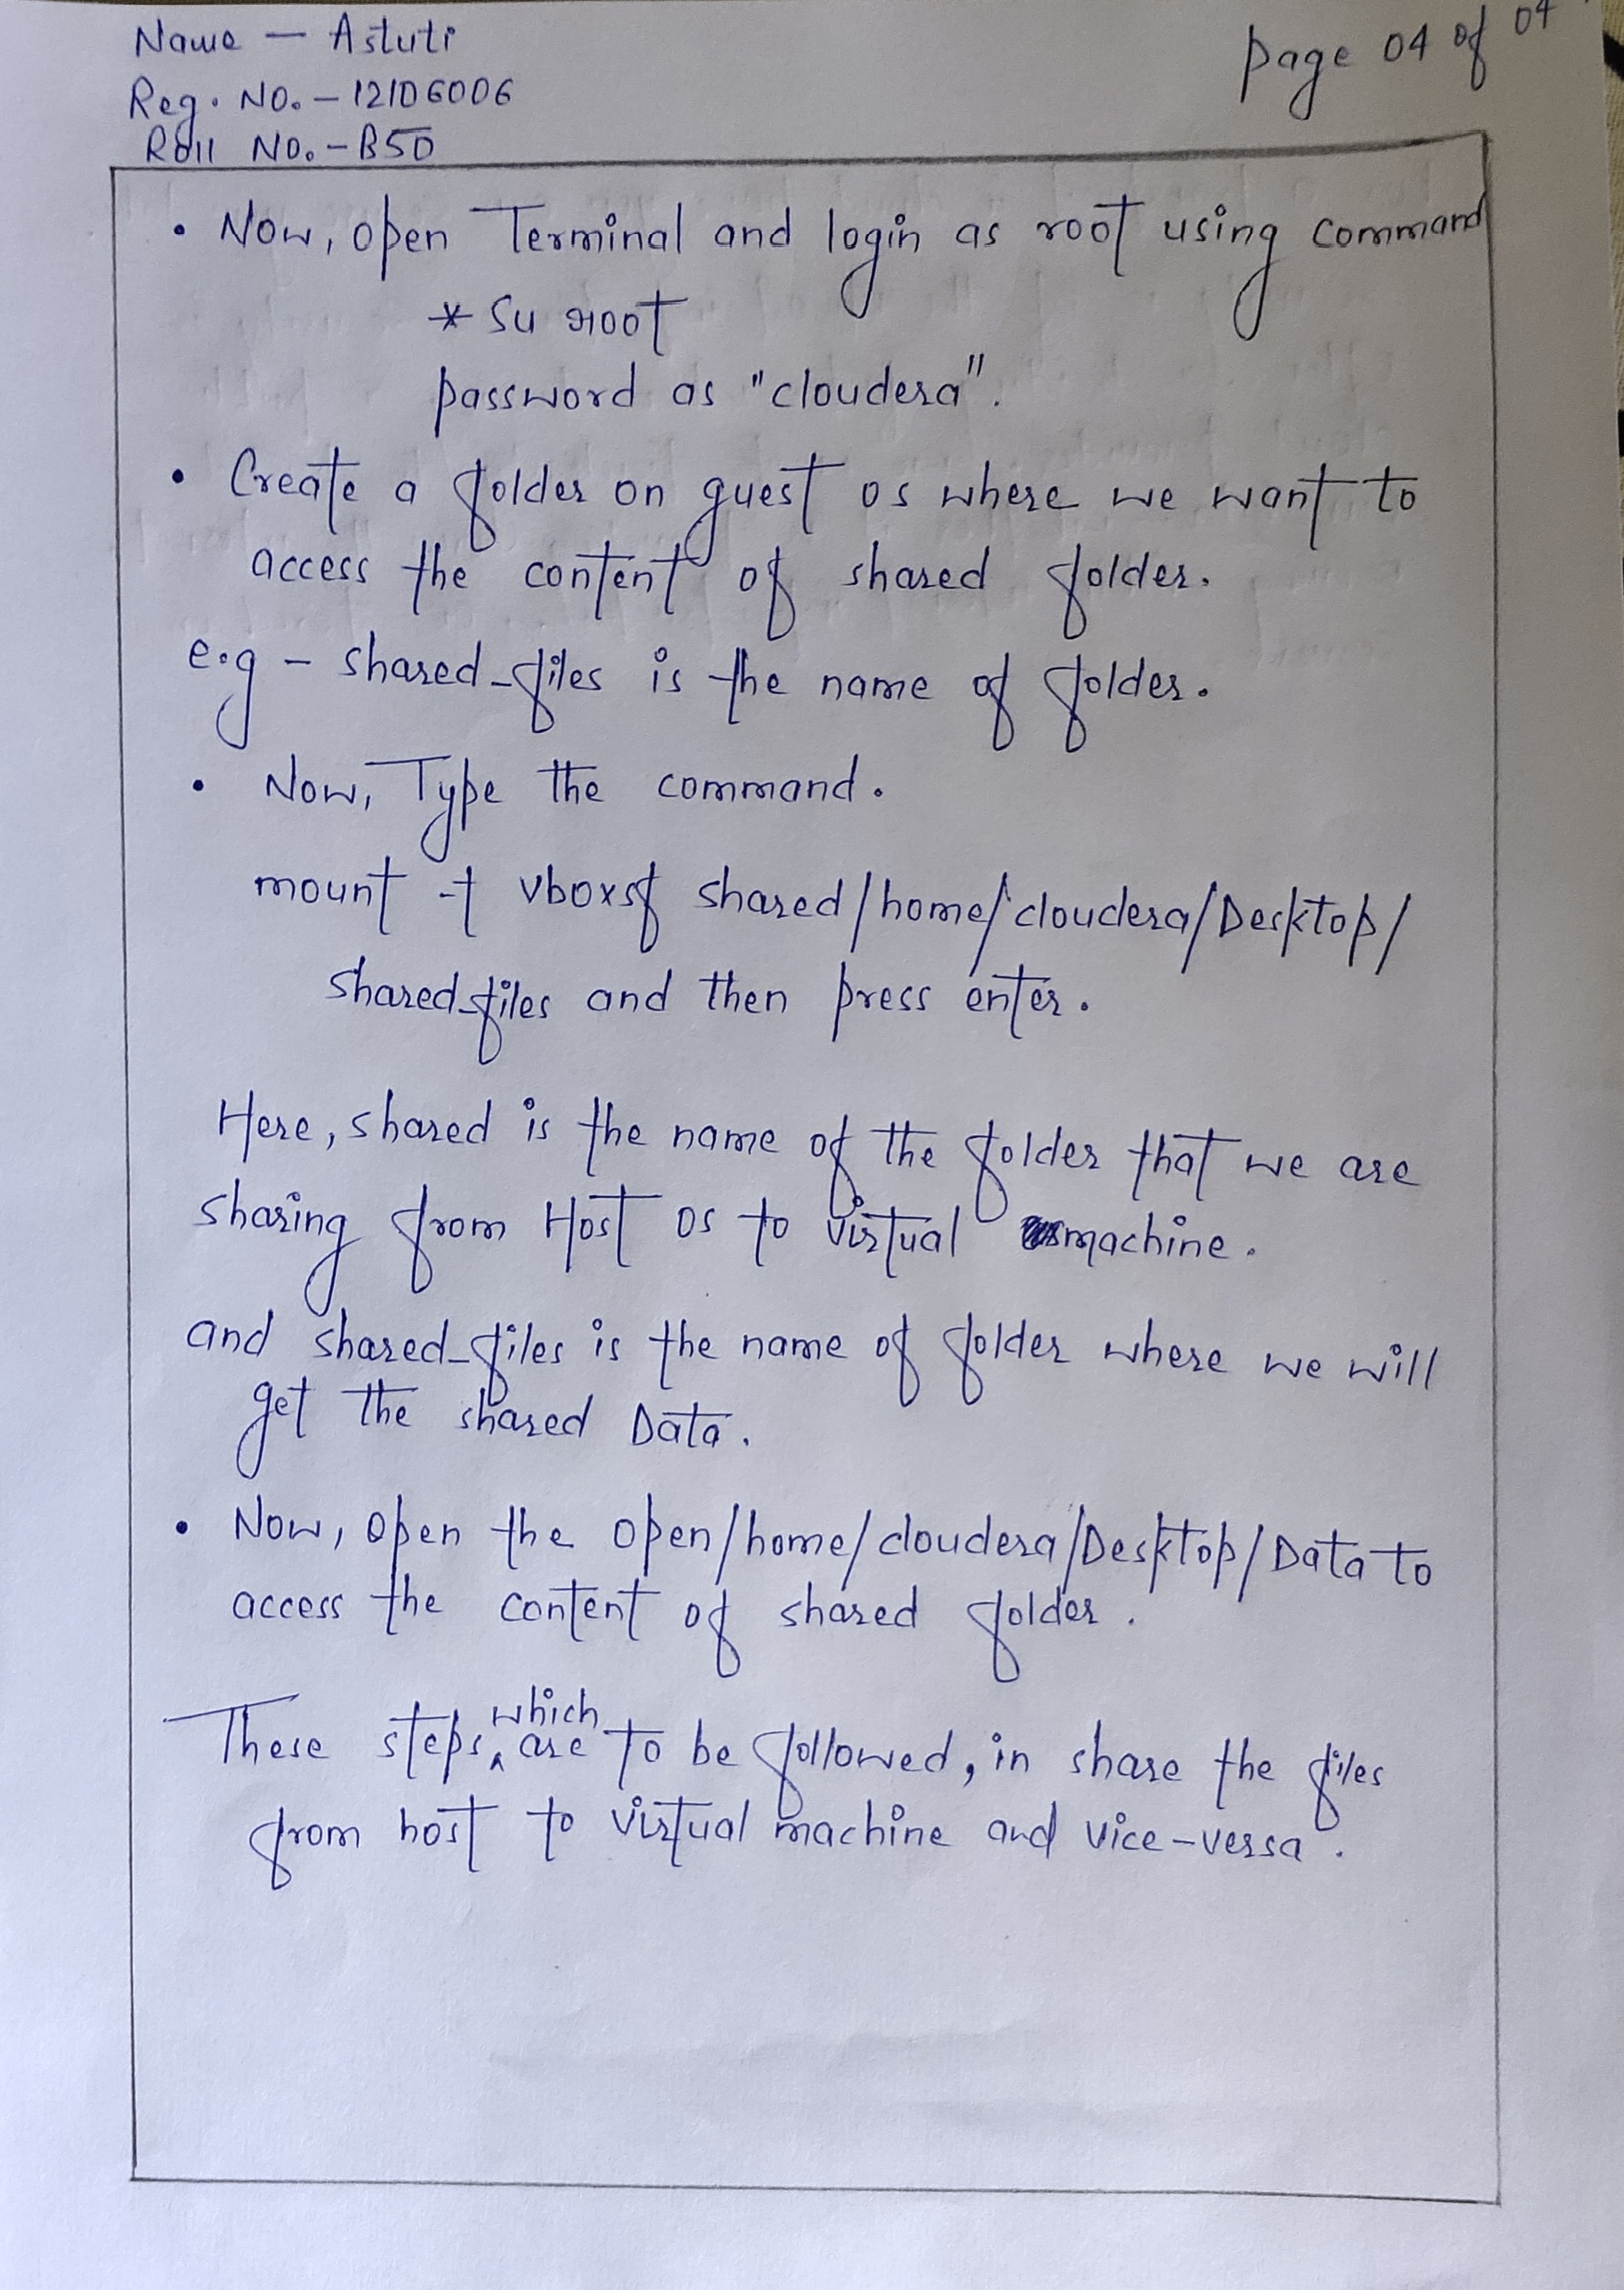 Name – Astuti
Page 04 of 04
Reg. NO. – 12106006
Roll NO. – B50
• Now, open Terminal and login as root using command
* Su root
password as "cloudera".
• Create a folder on guest os where we want to
access the content of shared folder.
e.g – shared_files is the name of folder.
• Now, Type the command.
mount -t vboxsf shared/home/cloudera/Desktop/
shared_files and then press enter.
Here, shared is the name of the folder that we are
sharing from Host os to virtual machine.
and shared_files is the name of folder where we will
get the shared Data.
• Now, open the open/home/cloudera/Desktop/Data to
access the content of shared folder.
These steps which are to be followed, in share the files
from host to virtual machine and vice-versa.